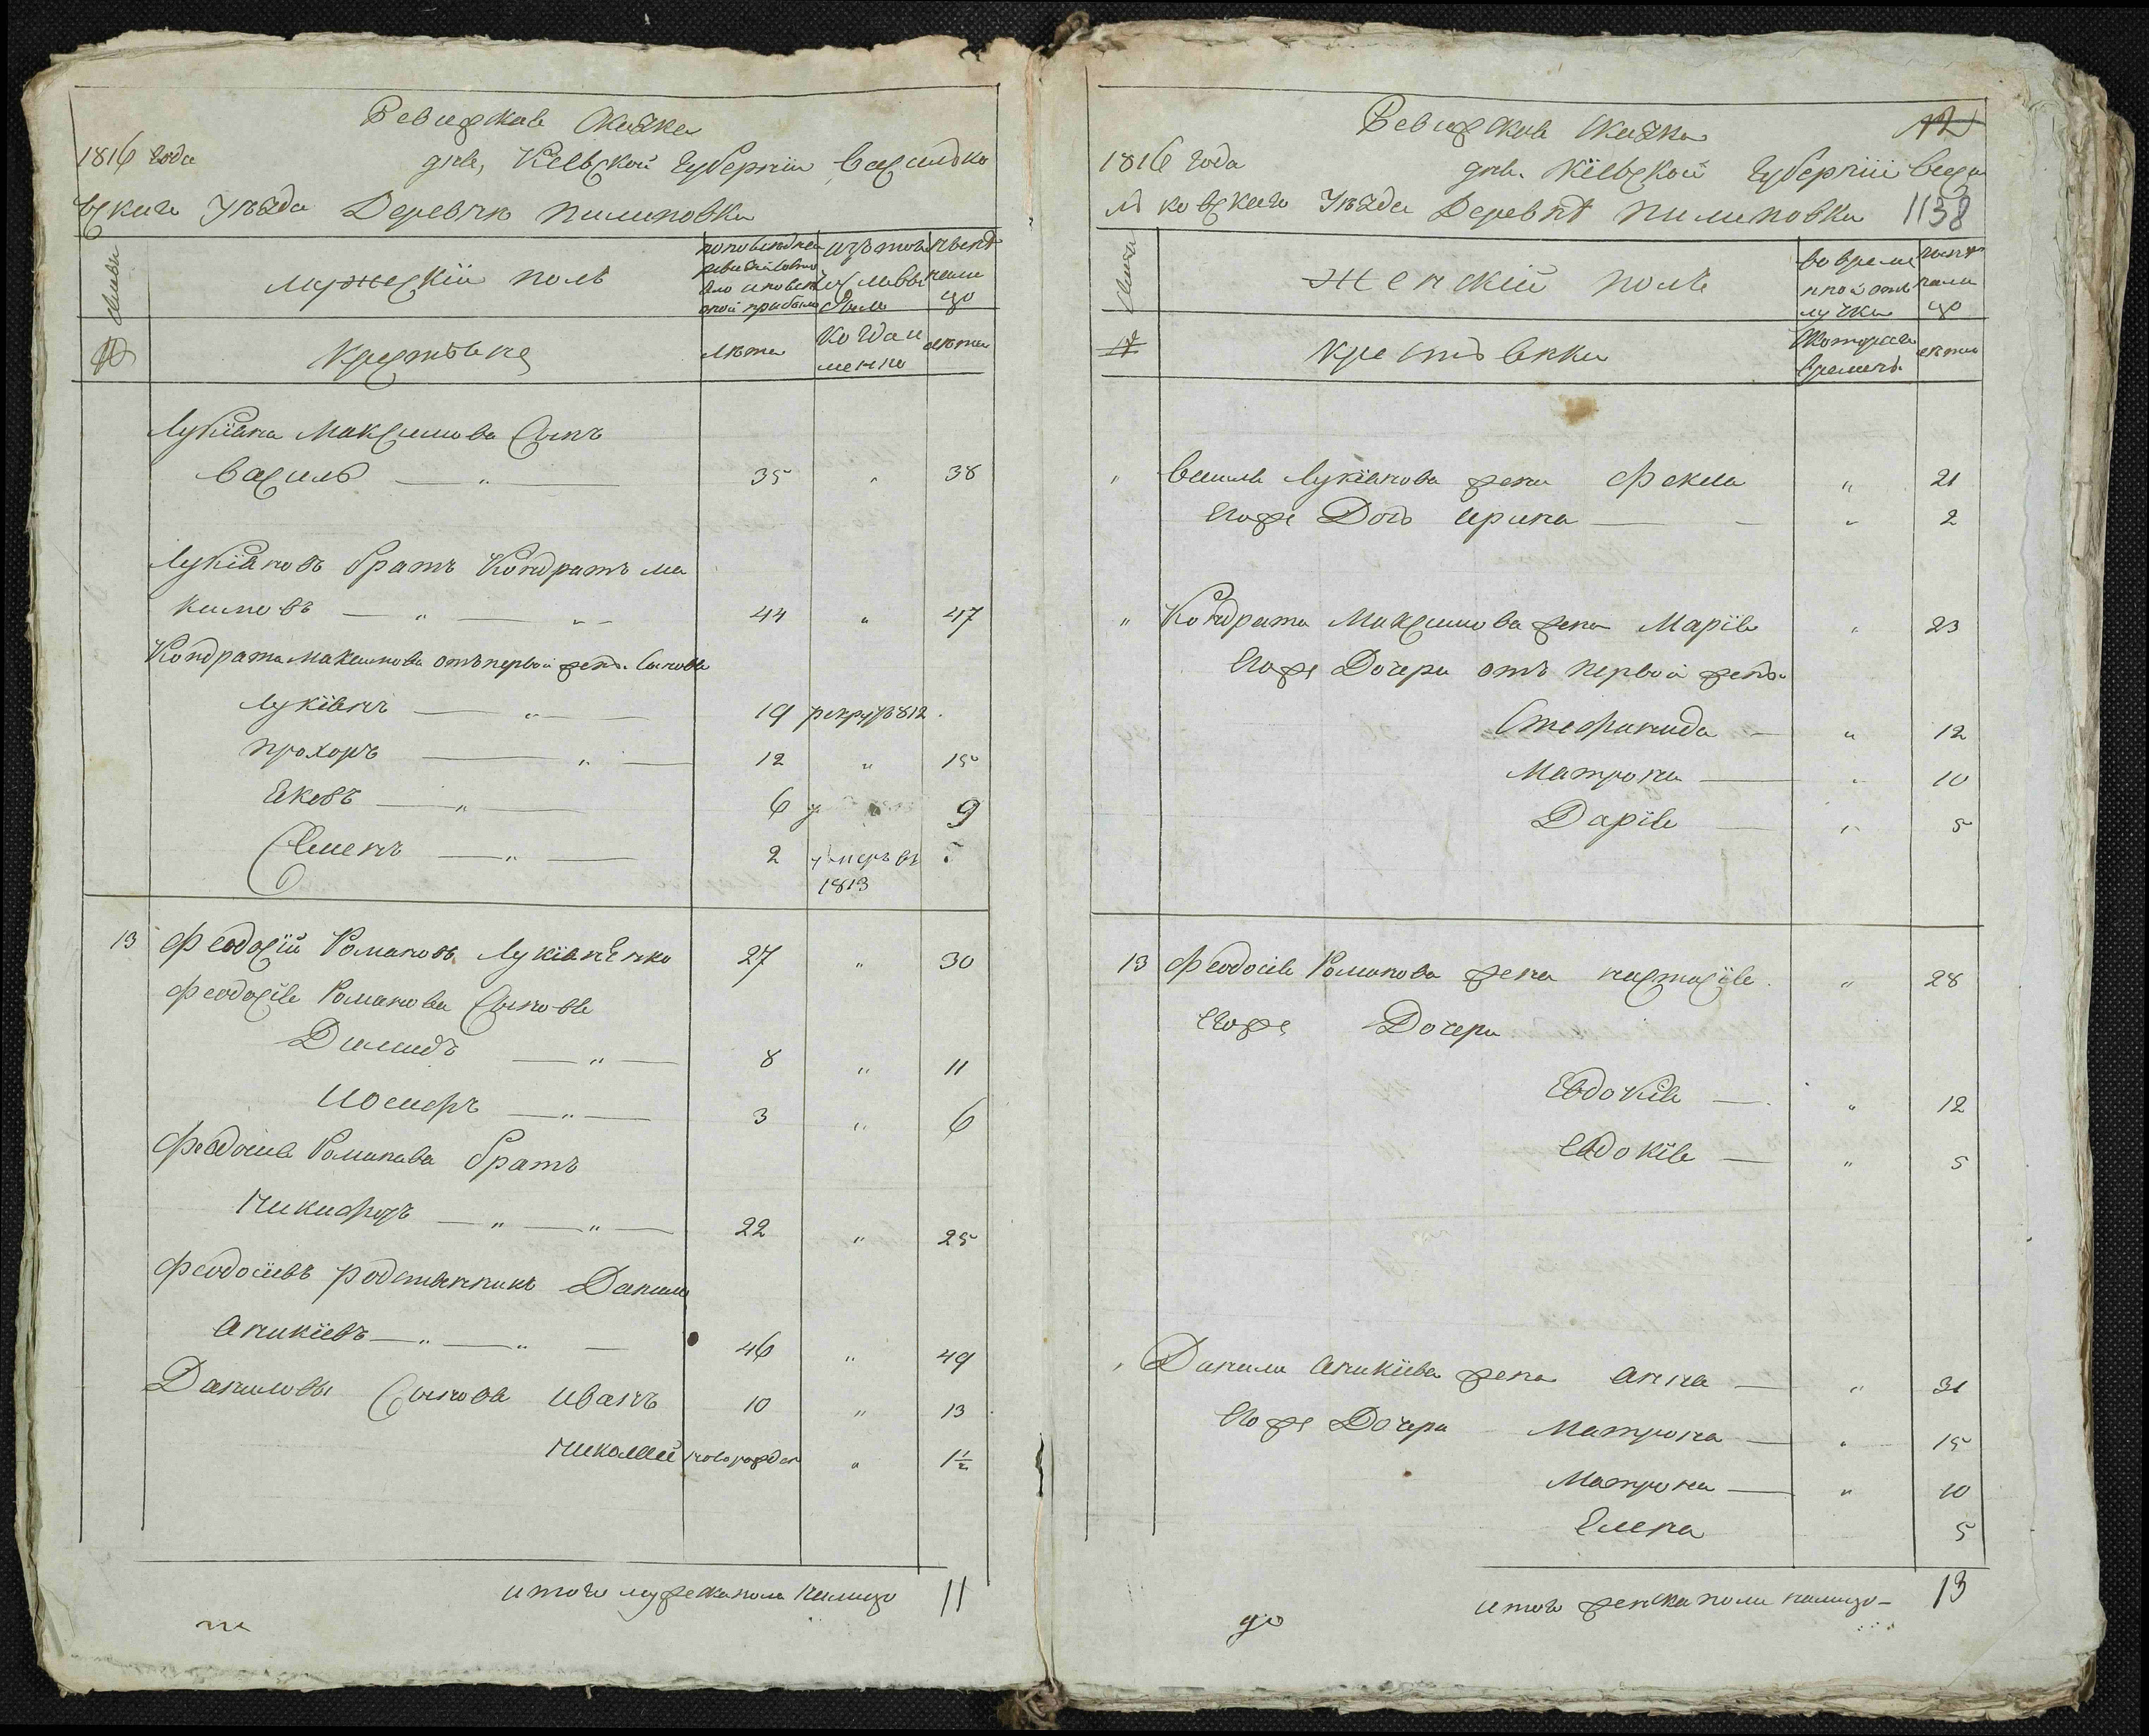 Ревизская Сказка
1816 года дня, Кіевской Губерніи Василько
вскаго Уезда Деревни Пилиповки
Семьи
мужескій полъ
по последней
ревизіи состо
яло и после
оной прибыло
изъ того
числа вы
было
ныне
нали
цо
Крестьяне
лета
когда и
менно
лета
Лукіяна Максимова Сынъ
Василь 35 " 38
Лукіяновъ братъ Кондратъ Ма
ксимовъ 44 " 47
Кондрата Максимова отъ первой жены Сыновя
Лукіянъ 19 рекрут 812
Прохоръ 12 " 15
Яковъ 6 9
Семенъ 2 умеръ въ
1813
13 Феодосій Романовъ Лукіяненко 27 " 30
Феодосія Романова Сыновя
Диамидъ 8 " 11
Иосифъ 3 " 6
Феодосия Романова братъ
Никифоръ 22 " 25
Феодосіевъ родственникъ Данило
Аникіевъ 46 " 49
Даниловы Сыновя Иванъ 10 " 13
Николай новорожден " 1½
итого мужеска пола налицо 11
Ревизская Сказка 12
1816 года дня. Кіевской Губерніи Васи
льковскаго Уезда Деревне Пилиповки 1138
Семьи
Женскій полъ
во време
нной отъ
лучки
ныне
нали
цо
Крестьянки
Скотораго
времени
лета
" Василя Лукіянова жена Фекла " 21
Егожъ Дочь Арина " 2
" Кондрата Максимова жена Марія " 23
Егожъ Дочери отъ первой жены
Стефанида " 12
Матрона " 10
Дарія " 5
13 Феодосія Романова жена Настасія " 28
Егожъ Дочери
Евдокія " 12
Евдокія " 5
" Данила Аникіева жена Анна " 31
Егожъ Дочери Матрона " 15
Матрона " 10
Елена 5
итого женска пола налицо 13